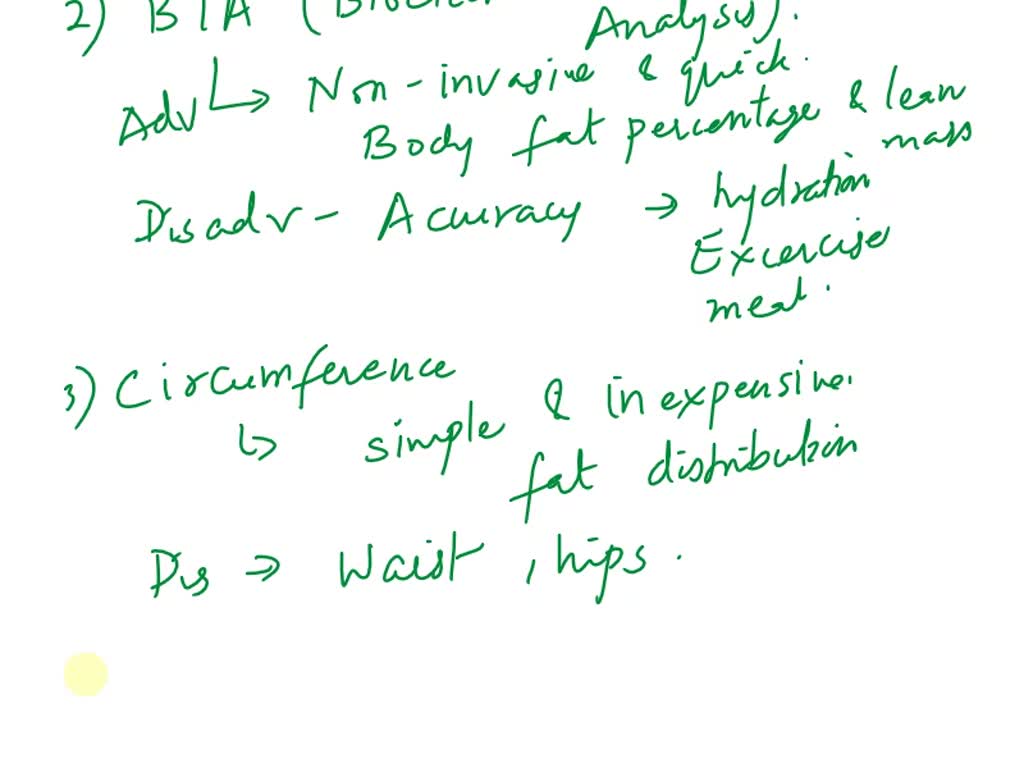 2) BIA (
Analysis).
Adv → Non-invasive & quick.
Body fat percentage & lean
mass
Disadv - Accuracy → hydration
Excercise
meal.
3) Circumference
↳ simple & inexpensive.
fat distribution
Dis → Waist, hips.